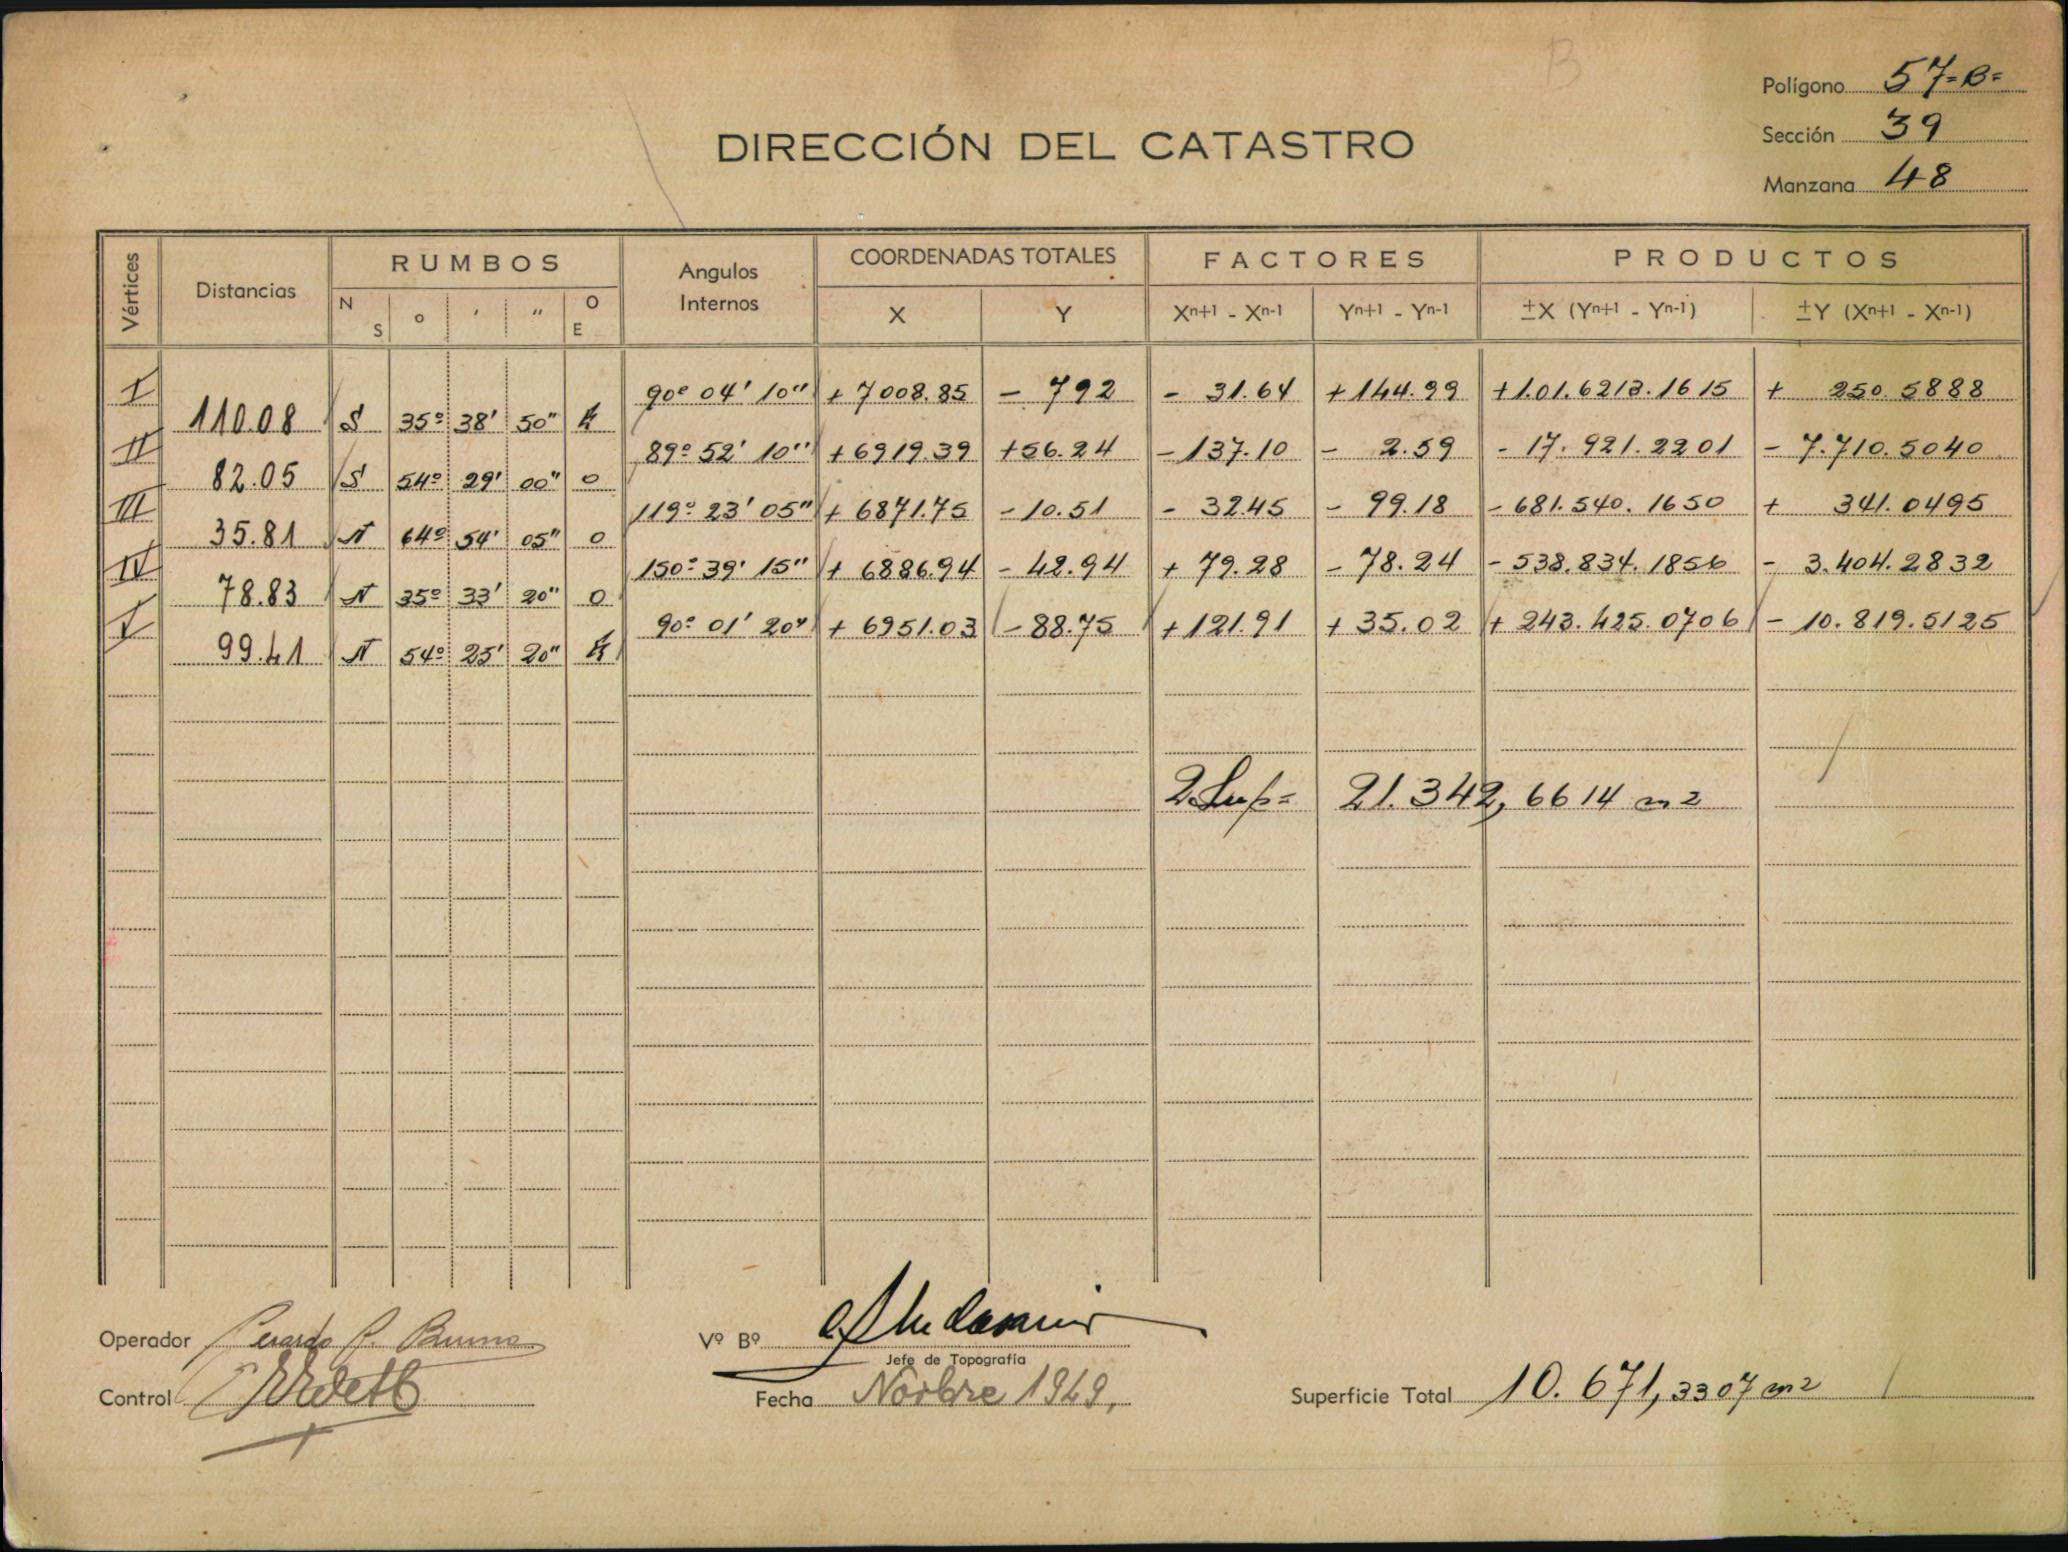 B
Polígono 57=B=
Sección 39
DIRECCIÓN DEL CATASTRO
Manzana 48
Vértices Distancias RUMBOS Angulos Internos COORDENADAS TOTALES FACTORES PRODUCTOS
N S o ' " O E X Y Xn+1 - Xn-1 Yn+1 - Yn-1 ±X (Yn+1 - Yn-1) ±Y (Xn+1 - Xn-1)
I 90º 04' 10" + 7008.85 - 792 - 31.64 + 144.99 + 1.01.6213.1615 + 250.5888
110.08 S 35º 38' 50" E
II 89º 52' 10" + 6919.39 + 56.24 - 137.10 - 2.59 - 17.921.2201 - 7.710.5040
82.05 S 54º 29' 00" O
III 119º 23' 05" + 6871.75 - 10.51 - 32.45 - 99.18 - 681.540.1650 + 341.0495
35.81 N 64º 54' 05" O
IV 150º 39' 15" + 6886.94 - 42.94 + 79.28 - 78.24 - 538.834.1856 - 3.404.2832
78.83 N 35º 33' 20" O
V 90º 01' 20" + 6951.03 - 88.75 + 121.91 + 35.02 + 243.425.0706 - 10.819.5125
99.41 N 54º 25' 20" E
2.Sup= 21.342,6614 m2
Operador Gerardo P.
Vº Bº
Jefe de Topografía
Control
Fecha Novbre 1949.
Superficie Total 10.671,3307 m2